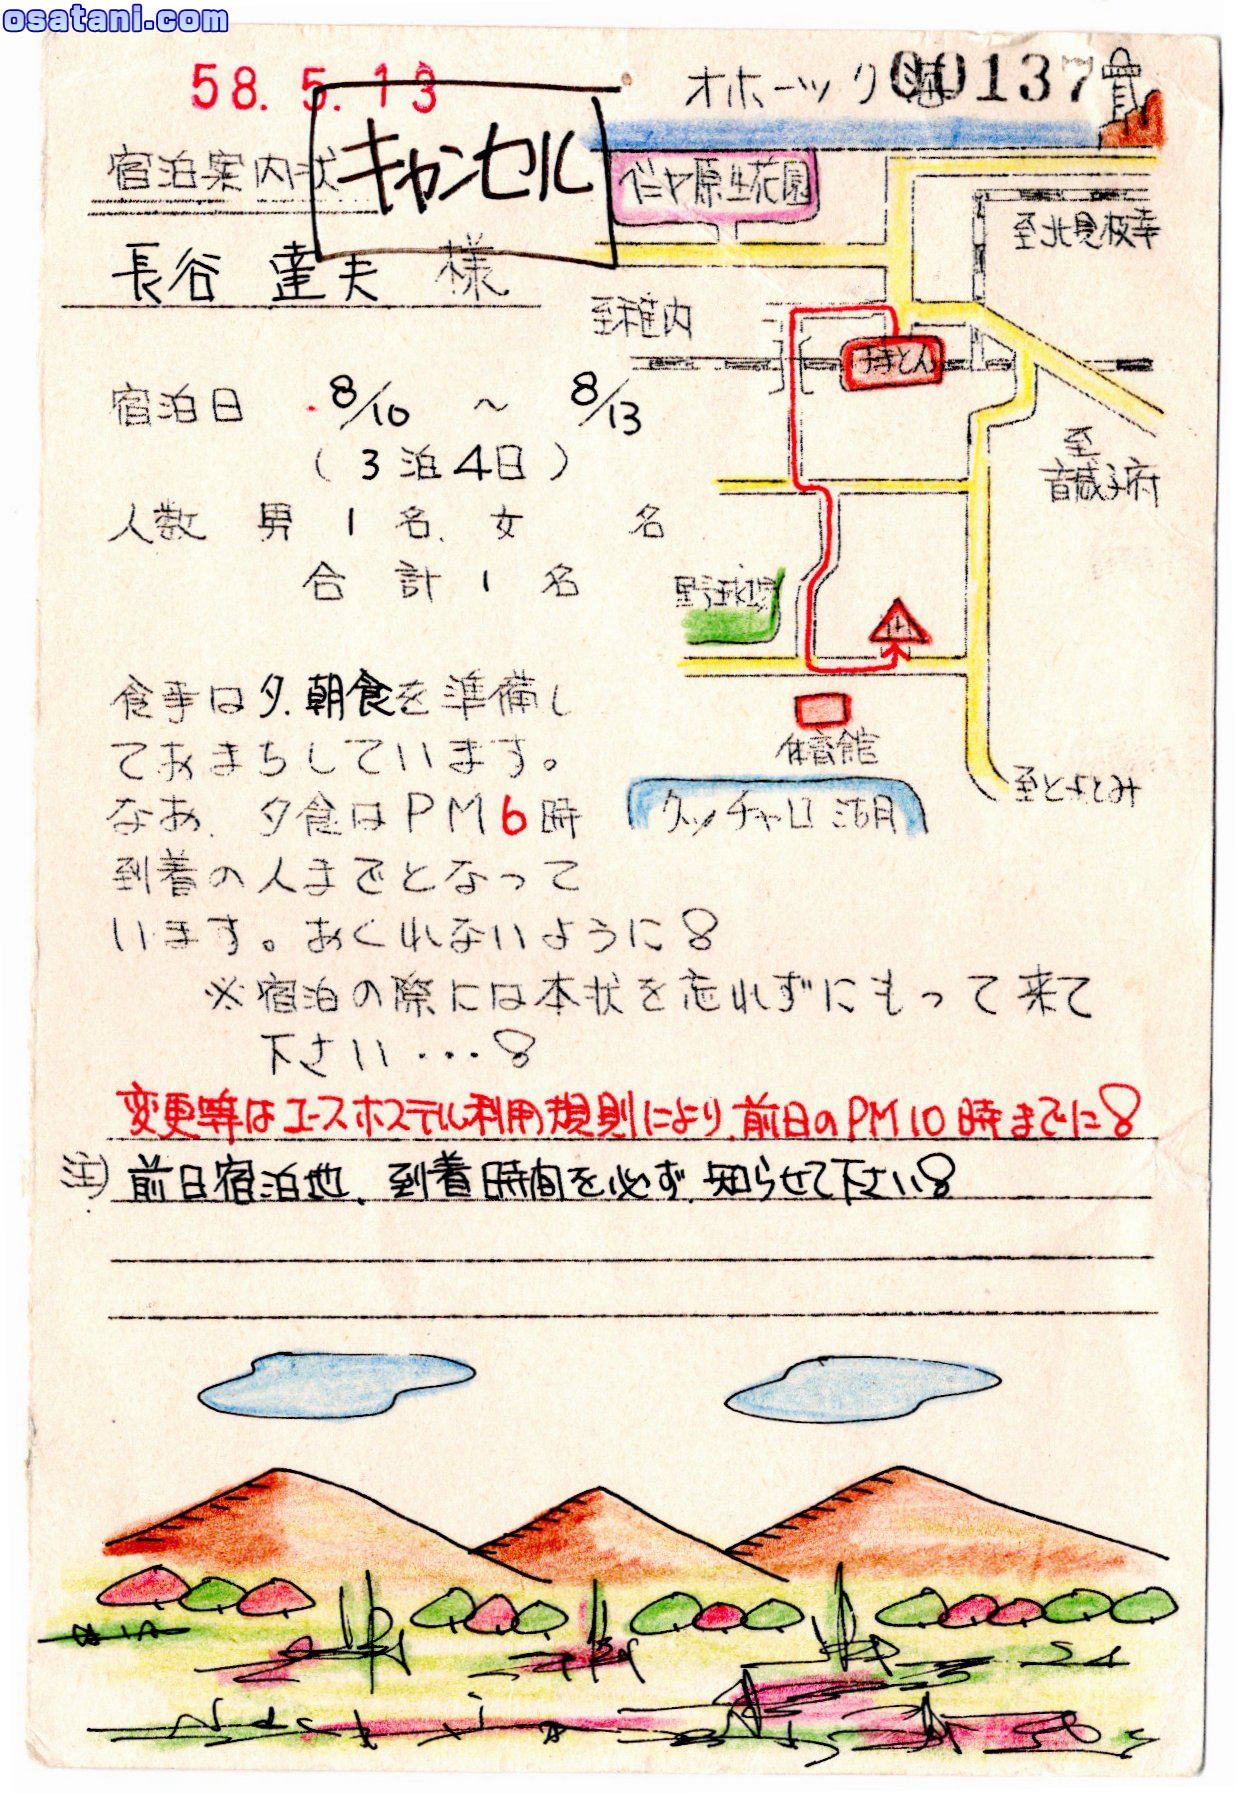 osatani.com
58.5.13
00137
オホーツク海
宿泊案内状
キャンセル
長谷 達夫 様
ベニヤ原生花園
至北見枝幸
至稚内
すきとん
宿泊日 8/10 ~ 8/13
(3泊4日)
至音威子府
人数 男 1名. 女 名
合計1名
野球場
体育館
クッチャロ湖
至とよとみ
食事は夕.朝食を準備し
ておまちしています。
なお、夕食はPM6時
到着の人までとなって
います。おくれないように!
※宿泊の際には本状を忘れずにもって来て
下さい・・・!
変更等はユースホステル利用規則により、前日のPM10時までに!
注) 前日宿泊地、到着時間を必ず、知らせて下さい!